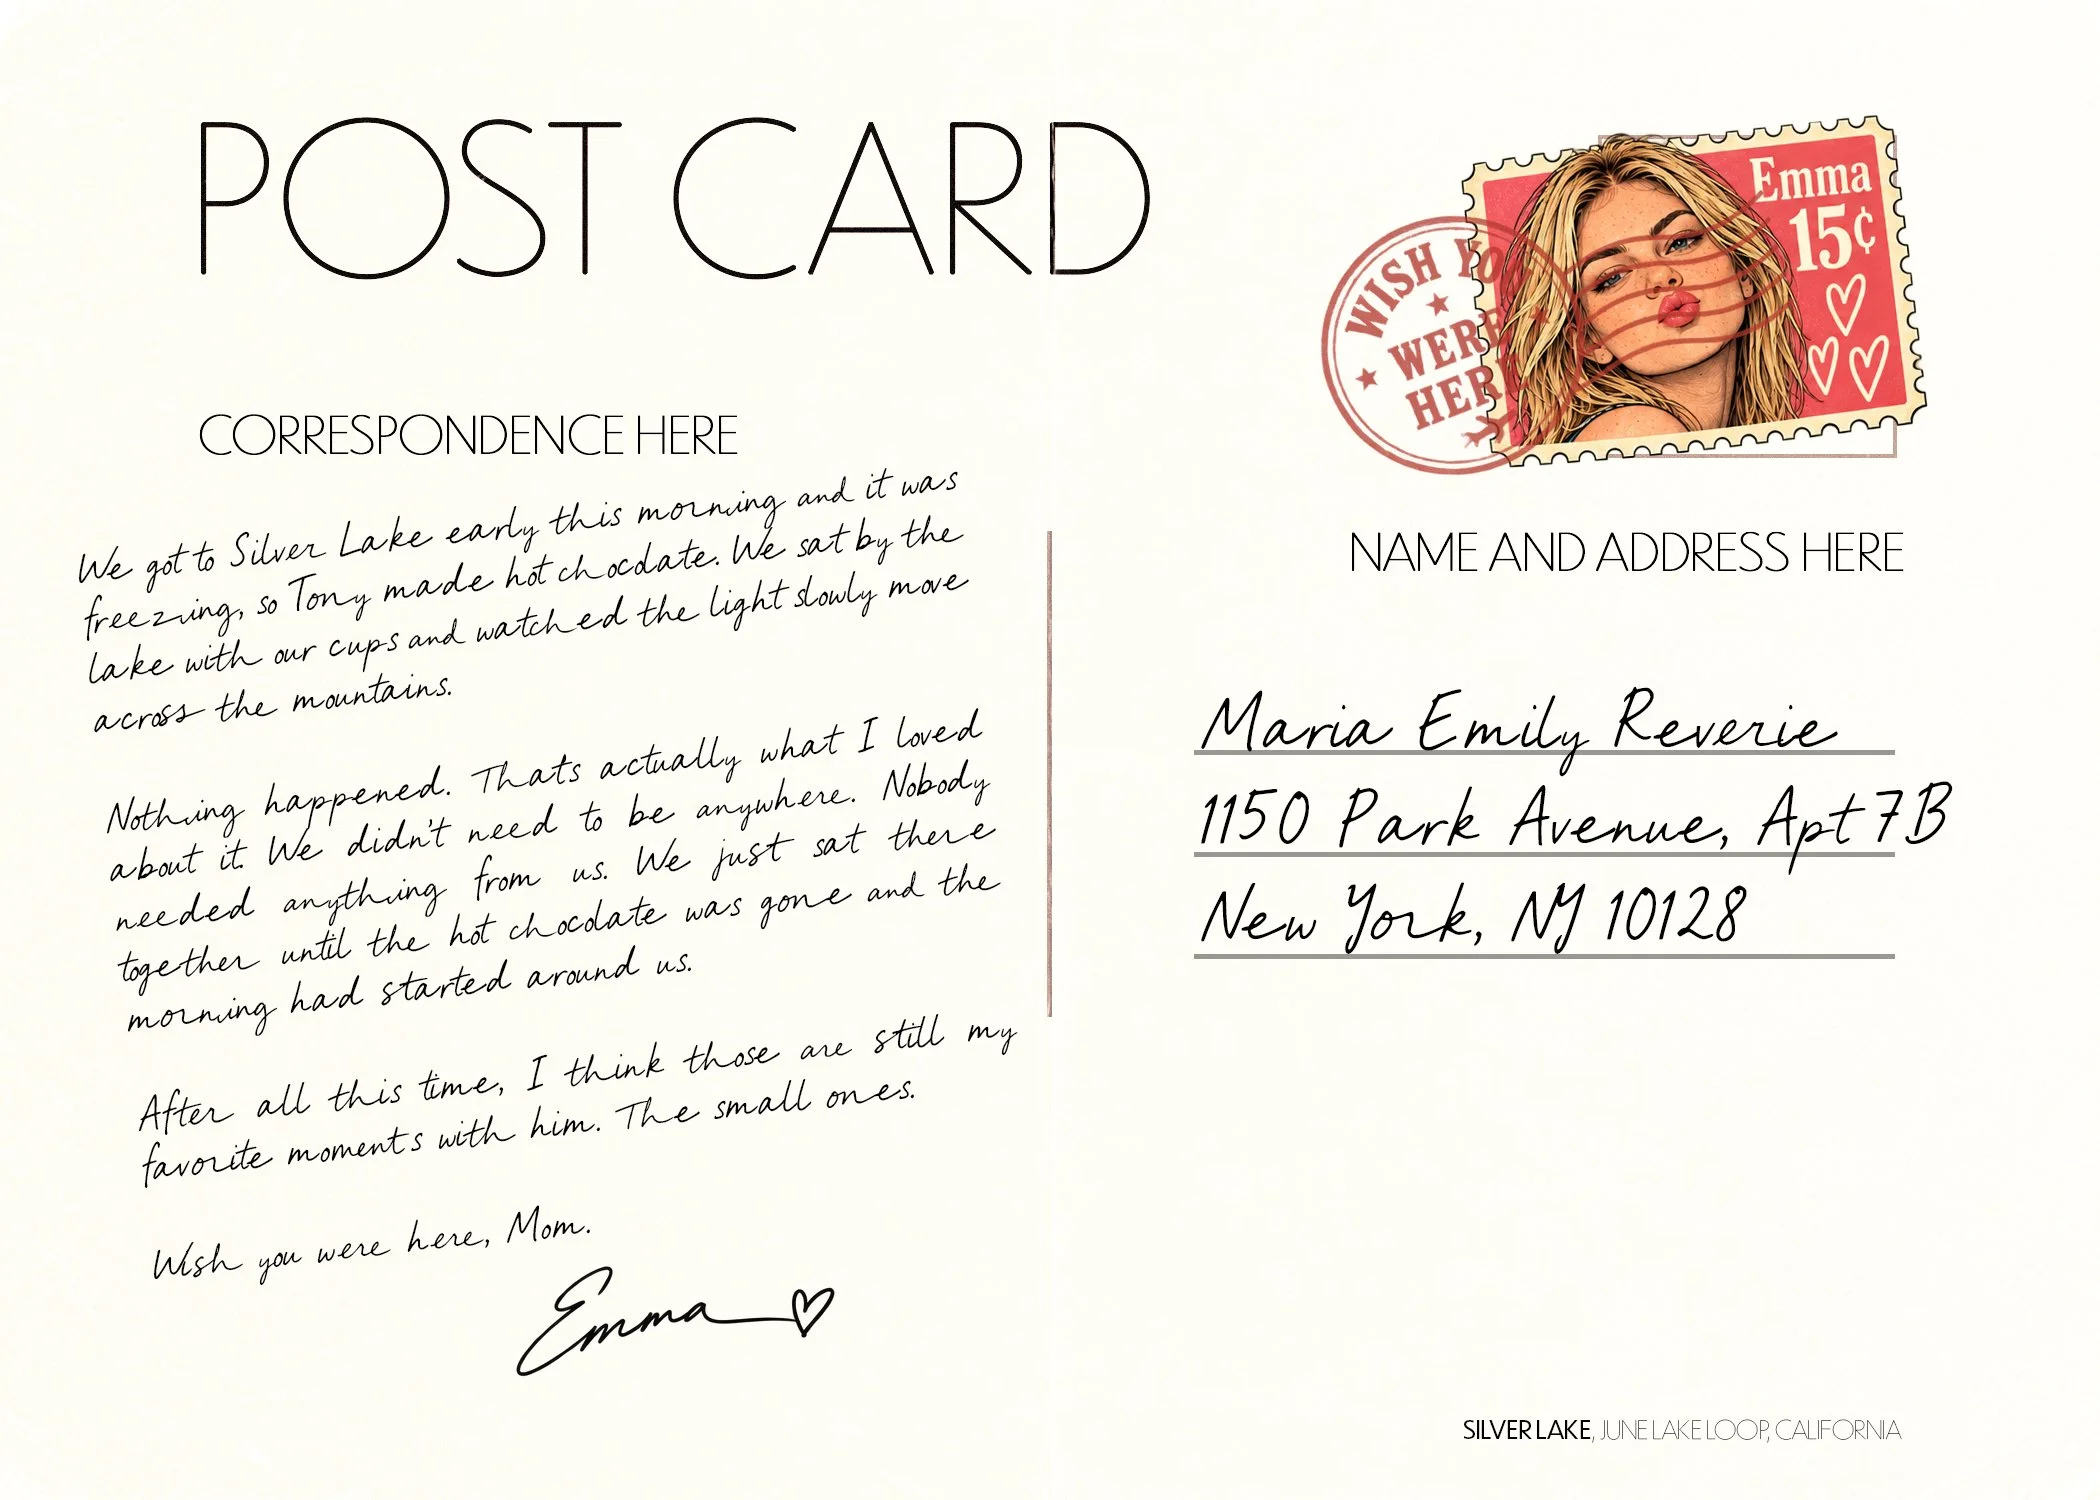 POST CARD
Emma
15¢
WISH YOU
WERE
HERE
CORRESPONDENCE HERE
We got to Silver Lake early this morning and it was
freezing, so Tony made hot chocolate. We sat by the
lake with our cups and watched the light slowly move
across the mountains.
Nothing happened. Thats actually what I loved
about it. We didn't need to be anywhere. Nobody
needed anything from us. We just sat there
together until the hot chocolate was gone and the
morning had started around us.
After all this time, I think those are still my
favorite moments with him. The small ones.
Wish you were here, Mom.
Emma
NAME AND ADDRESS HERE
Maria Emily Reverie
1150 Park Avenue, Apt 7B
New York, NY 10128
SILVER LAKE, JUNE LAKE LOOP, CALIFORNIA